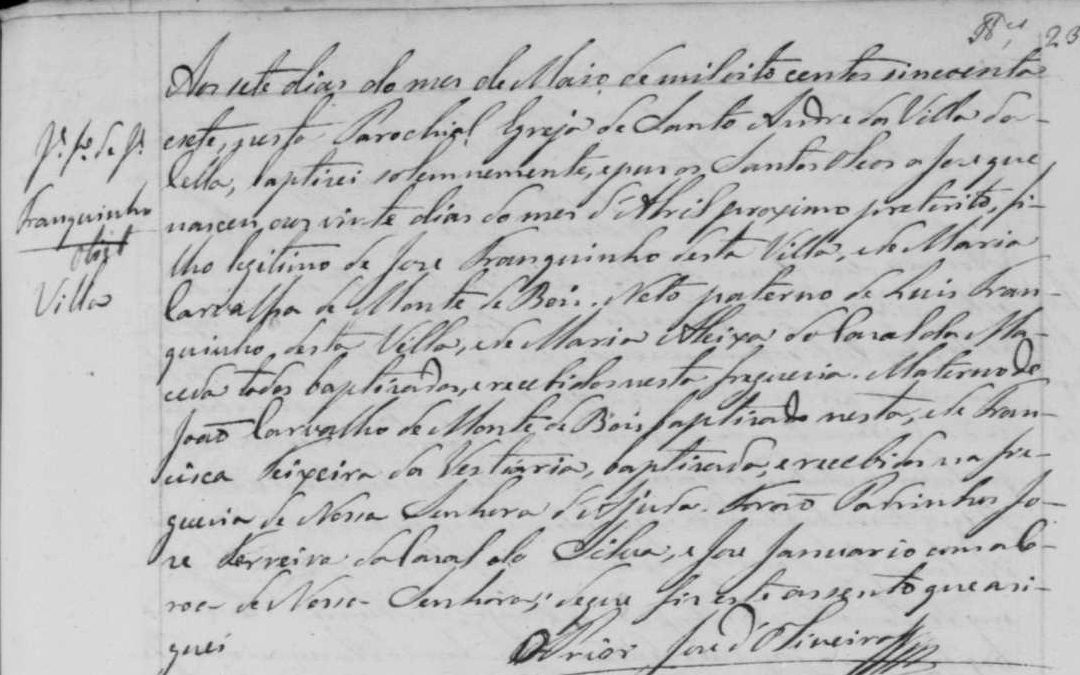 23
Aos sete dias do mes de Maio de mil oito centos sincoenta
esete, nesta Parochial Igreja de Santo Andre da Villa da
Cella, baptizei solemnemente, epuz os Santos Oleos a Jose que
nasceu aos vinte dias do mes d'Abril proximo preterito, fi-
lho legitimo de Jose Franquinho desta Villa, ede Maria
Carvalha de Monte de Bois. Neto paterno de Luis Fran-
quinho desta Villa, e de Maria Aleixa do Casal da Ma-
ceda todos baptizados, erecebidos nesta freguezia. Materno de
João Carvalho de Monte de Bois baptizado nesta, ede Fran-
cisca Teixeira da Vestiaria, baptizada, erecebidos na fre-
guezia de Nossa Senhora d'Ajuda. Forão Padrinhos Jo-
ze Ferreira do Casal da Silva, e Jose Januario com a Co-
roa de Nossa Senhora; deque fiz este assento que asi-
gnei
O Prior Jose d'Oliveira
Jᵉ. fº. de Jᵉ.
Franquinho
Villa